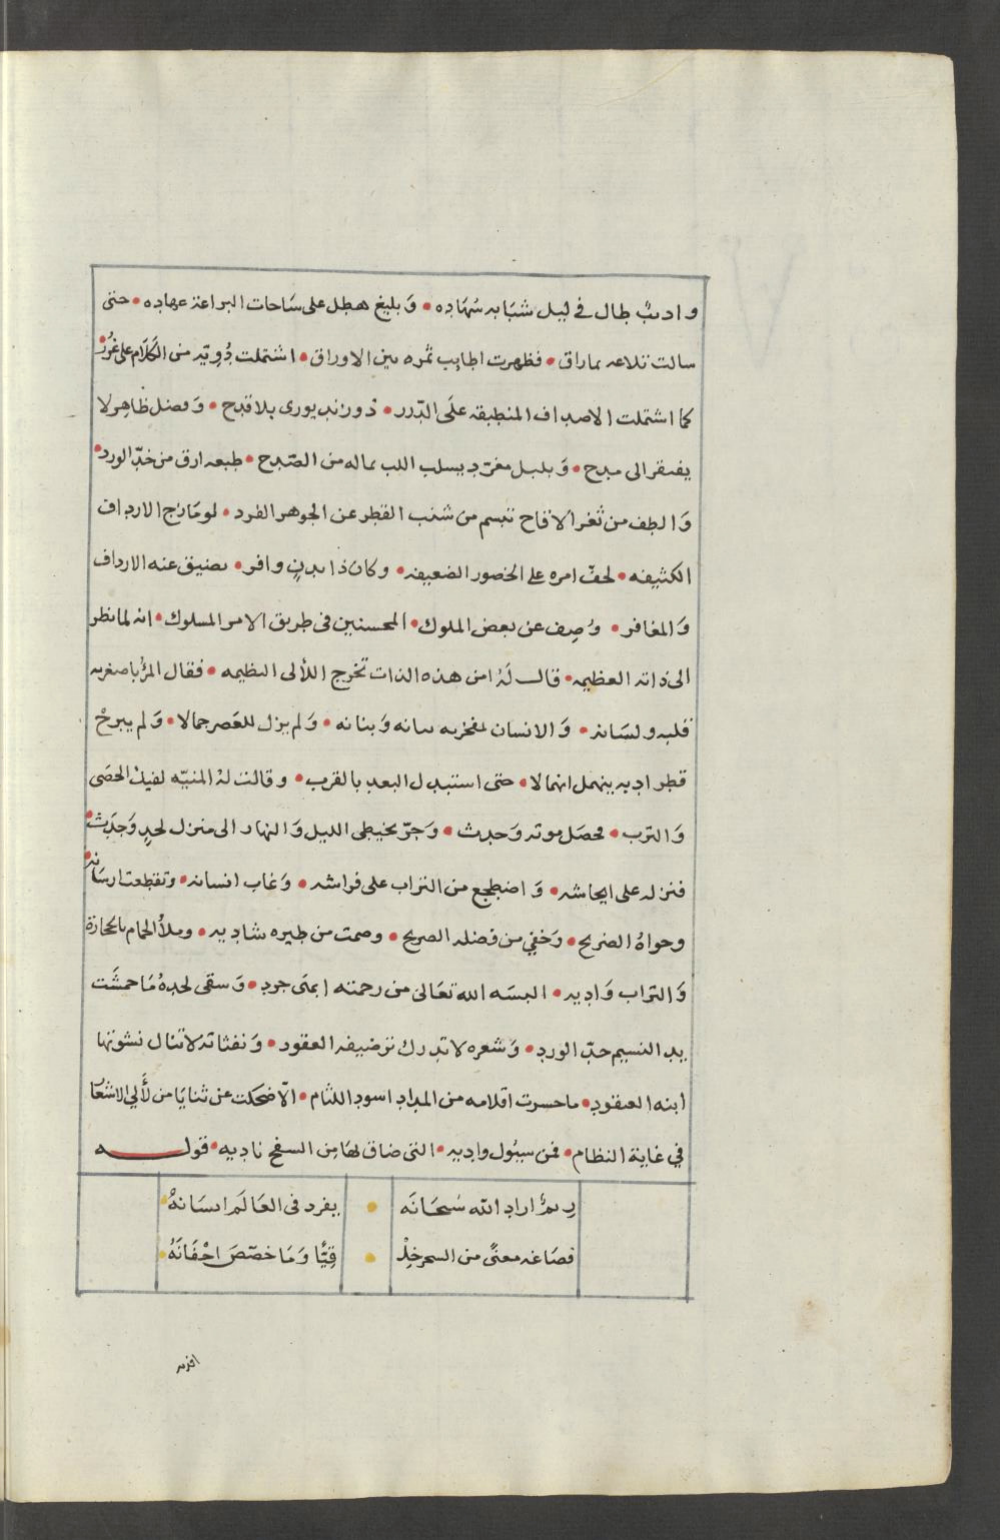 واديبٌ طال في ليل شبَابه سُهَاده • وَبليغ هطل على سَاحات البراعة عهاده • حتى
سالت تلاعه بما راق • فظهرت اطايب ثمره بين الاوراق • اشتملت دُويّه من الكلَام على غُرر •
كما اشتملت الاصداف المنطبقه علَى الدّرر • ذو زند يورى بلا قدح • وَفضل ظاهر لا
يفتقر الى مدح • وَبلبل مغرّد يسلب اللب بما له من الصّدح • طبعه ارق من خدّ الورد •
وَالطف من ثغر الاقاح تبسم من شنب القطر عن الجوهر الفرد • لو مَازج الارداف
الكثيفه • لخفّ امره على الخصور الضعيفه • وكان ذا بدنٍ وافر • تضيق عنه الارداف
وَالمغافر • وُصِف عن بعض الملوك • المحسنين في طريق الامر المسلوك • انه لما نظر
الى ذاته العظيمه • قال لهُ امن هذه الذات تخرج اللآلى النظيمه • فقال المرٔ باصغريه
قلبه ولسَانه • وَالانسان بفخريه بيانه وَبنانه • وَلم يزل للعَصر جمالا • وَلم يبرحْ
قطر ادبه ينهمل انهمالا • حتى استبدل البعد بالقرب • وقالت لهُ المنيّه لفيك الحصَى
وَالترب • فحصَل موته وَحدث • وَجرّ بخيطى الليل وَالنهار الى منزل لحدٍ وَجدَث •
فنزله على ايحاشه • وَاضطجع من التراب على فراشه • وَغاب انسانه • وتقطعت ارسَانه •
وحواهُ الضريح • وَخفي من فضله الصريح • وصمت من طيره شاديه • وملأ الحمام بالحجارة
وَالتراب وَاديه • البسَه الله تعَالى من رحمته ابهَى جرد • وَسقى لحدهُ مَا خمشَت
يد النسيم خدّ الورد • وَشعره لا تدرك ترصيفه العقود • وَنفثاته لا تنال نشوتها
ابنه العنقود • ما حسرت اقلامه من المداد اسود اللثام • الّا ضحكت عن ثنايَا من لَآلي الاشعَار
في غاية النظام • فمن سيُول واديه • التى ضاق لهَا من السفح ناديه • قوله
ريمٌ اراد الله سُبحَانَه • يفرد في العَالَم انسَانهُ •
فصَاغه معنًى من السحر خِلْ • قِيًّا وَمَا خصّصَ اجْفَانَهُ •